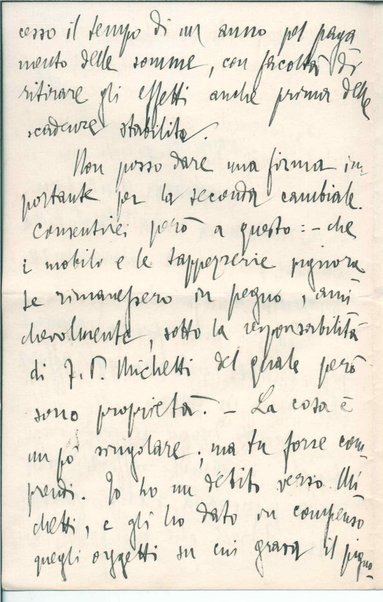 cesso il tempo di un anno pel paga
mento delle somme, con facoltà di
ritirare gli effetti anche prima delle
scadenze stabilite.
Non posso dare una firma im-
portante per la seconda cambiale.
Consentirei però a questo: – che
i mobili e le tappezzerie pignora
te rimanessero in pegno, ami
chevolmente, sotto la responsabilità
di F. P. Michetti del quale però
sono proprietà. – La cosa è
un po' singolare; ma tu forse com-
prendi. Io ho un debito verso Mi
chetti, e gli ho dato in compenso
quegli oggetti su cui grava il pigno-